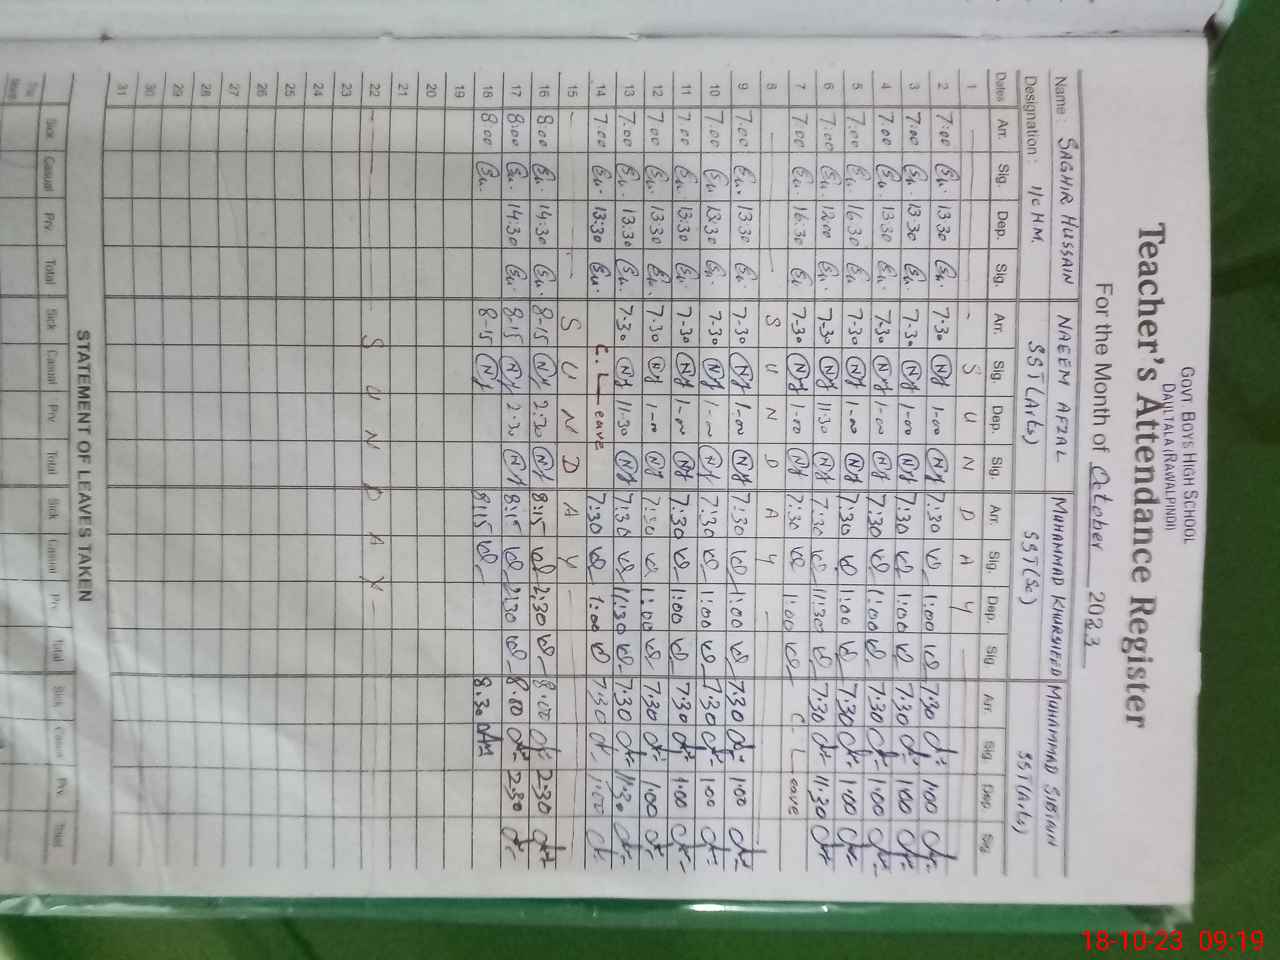 GOVT BOYS HIGH SCHOOL
DAULTALA (RAWALPINDI)
Teacher's Attendance Register
For the Month of October 2023
Name: SAGHIR HUSSAIN NAEEM AFZAL MUHAMMAD KHURSHEED MUHAMMAD SIBTAIN
Designation: I/C H.M. SST (Arts) SST (Sc) SST (Arts)
Dates Arr. Sig. Dep. Sig. Arr. Sig. Dep. Sig. Arr. Sig. Dep. Sig. Arr. Sig. Dep. Sig.
1 S U N D A Y
2 7:00 13:30 7-30 1-00 7:30 1:00 7:30 1:00
3 7:00 13-30 7-30 1-00 7:30 1:00 7:30 1:00
4 7:00 13:30 7-30 1-00 7:30 1:00 7:30 1:00
5 7:00 16:30 7-30 1-00 7:30 1:00 7:30 1:00
6 7:00 12:00 7-30 11-30 7:30 11:30 7:30 11:30
7 7:00 16:30 7-30 1-00 7:30 1:00 C - Leave
8 S U N D A Y
9 7:00 13:30 7-30 1-00 7:30 1:00 7:30 1:00
10 7:00 13:30 7-30 1-00 7:30 1:00 7:30 1:00
11 7:00 13:30 7-30 1-00 7:30 1:00 7:30 1:00
12 7:00 13:30 7-30 1-00 7:30 1:00 7:30 1:00
13 7:00 13:30 7-30 11-30 7:30 11:30 7:30 11:30
14 7:00 13:30 C. Leave 7:30 1:00 7:30 1:00
15 S U N D A Y
16 8:00 14:30 8-15 2-30 8:15 2:30 8:00 2:30
17 8:00 14:30 8-15 2-30 8:15 2:30 8:00 2:30
18 8:00 8-15 8:15 8:30 AM
19
20
21
22 S U N D A Y
23
24
25
26
27
28
29
30
31
STATEMENT OF LEAVES TAKEN
Sick Casual Prv Total Sick Casual Prv Total Sick Casual Prv Total Sick Casual Prv Total
18-10-23 09:19